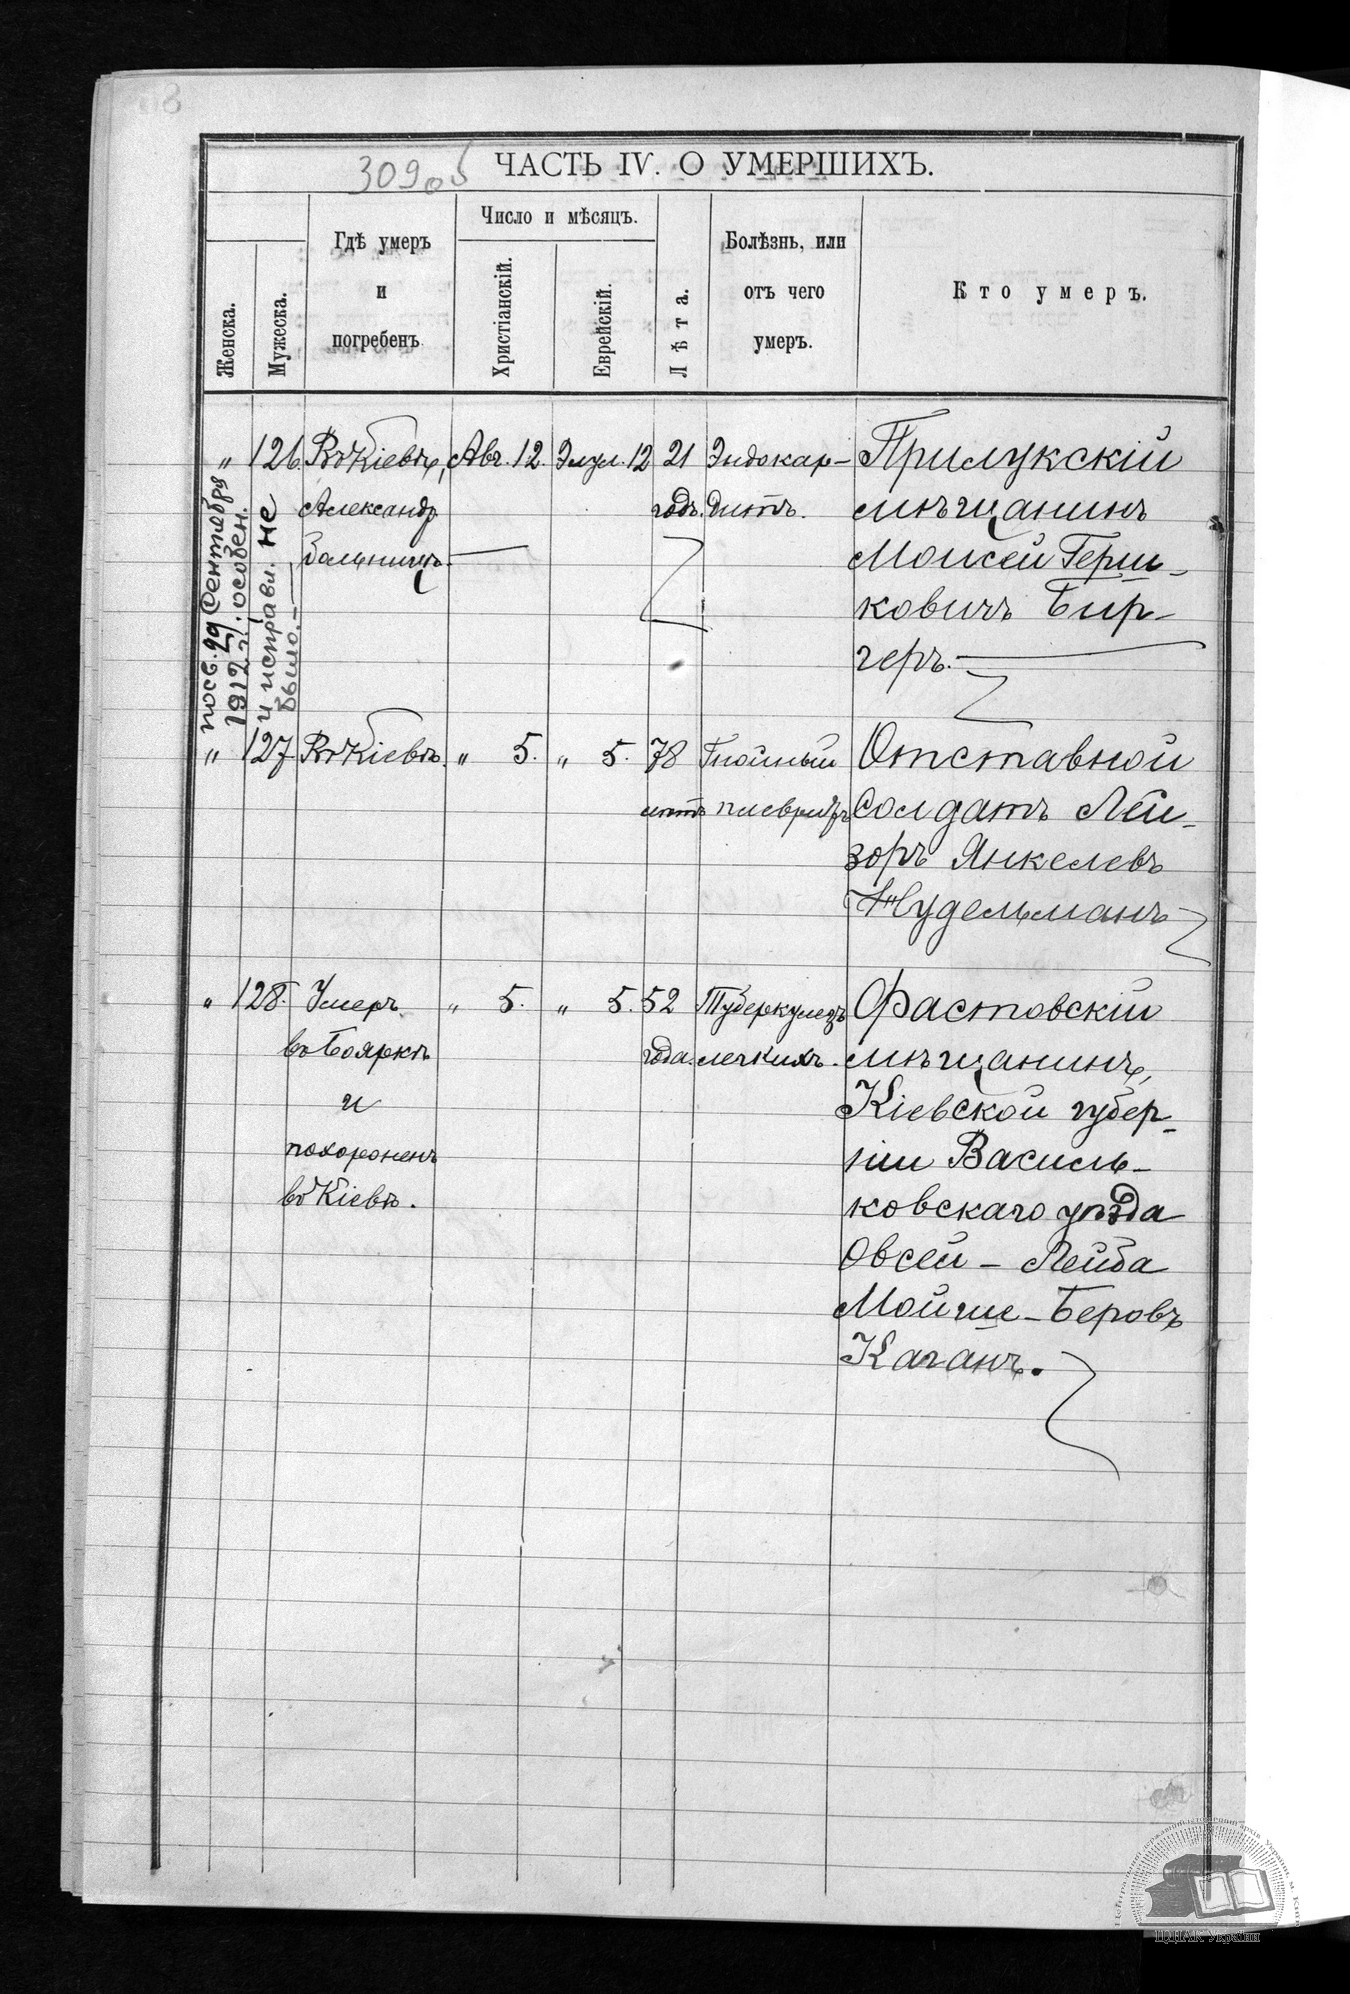 309об
ЧАСТЬ IV. О УМЕРШИХЪ.
Женска.
Мужеска.
Гдѣ умеръ
и
погребенъ
Число и мѣсяцъ.
Христіанскій.
Еврейскій.
Лѣта.
Болѣзнь, или
отъ чего
умеръ.
Кто умеръ.
" 126 Въ Кіевѣ, Авг. 12. Элул. 12 21 Эндокар- Прилукскій
Александр. годъ. дитъ. мѣщанинъ
больницѣ. Моисей Герш-
ковичъ Бир-
геръ.
посв. 29 Сентября
1912 г. особен.
и исправл. не
было.
" 127 Въ Кіевѣ. " 5. " 5. 78 Гнойный Отставной
лѣтъ плевритъ Солдатъ Лей-
зоръ Янкелевъ
Нудельманъ
" 128. Умеръ " 5. " 5. 52 Туберкулезъ Фастовскій
въ Бояркѣ года. легкихъ. мѣщанинъ,
и Кіевской губер-
похороненъ ніи Василь-
въ Кіевѣ. ковскаго уѣзда
Овсей-Лейба
Мойше-Беровъ
Каганъ.
ЦДІАК України